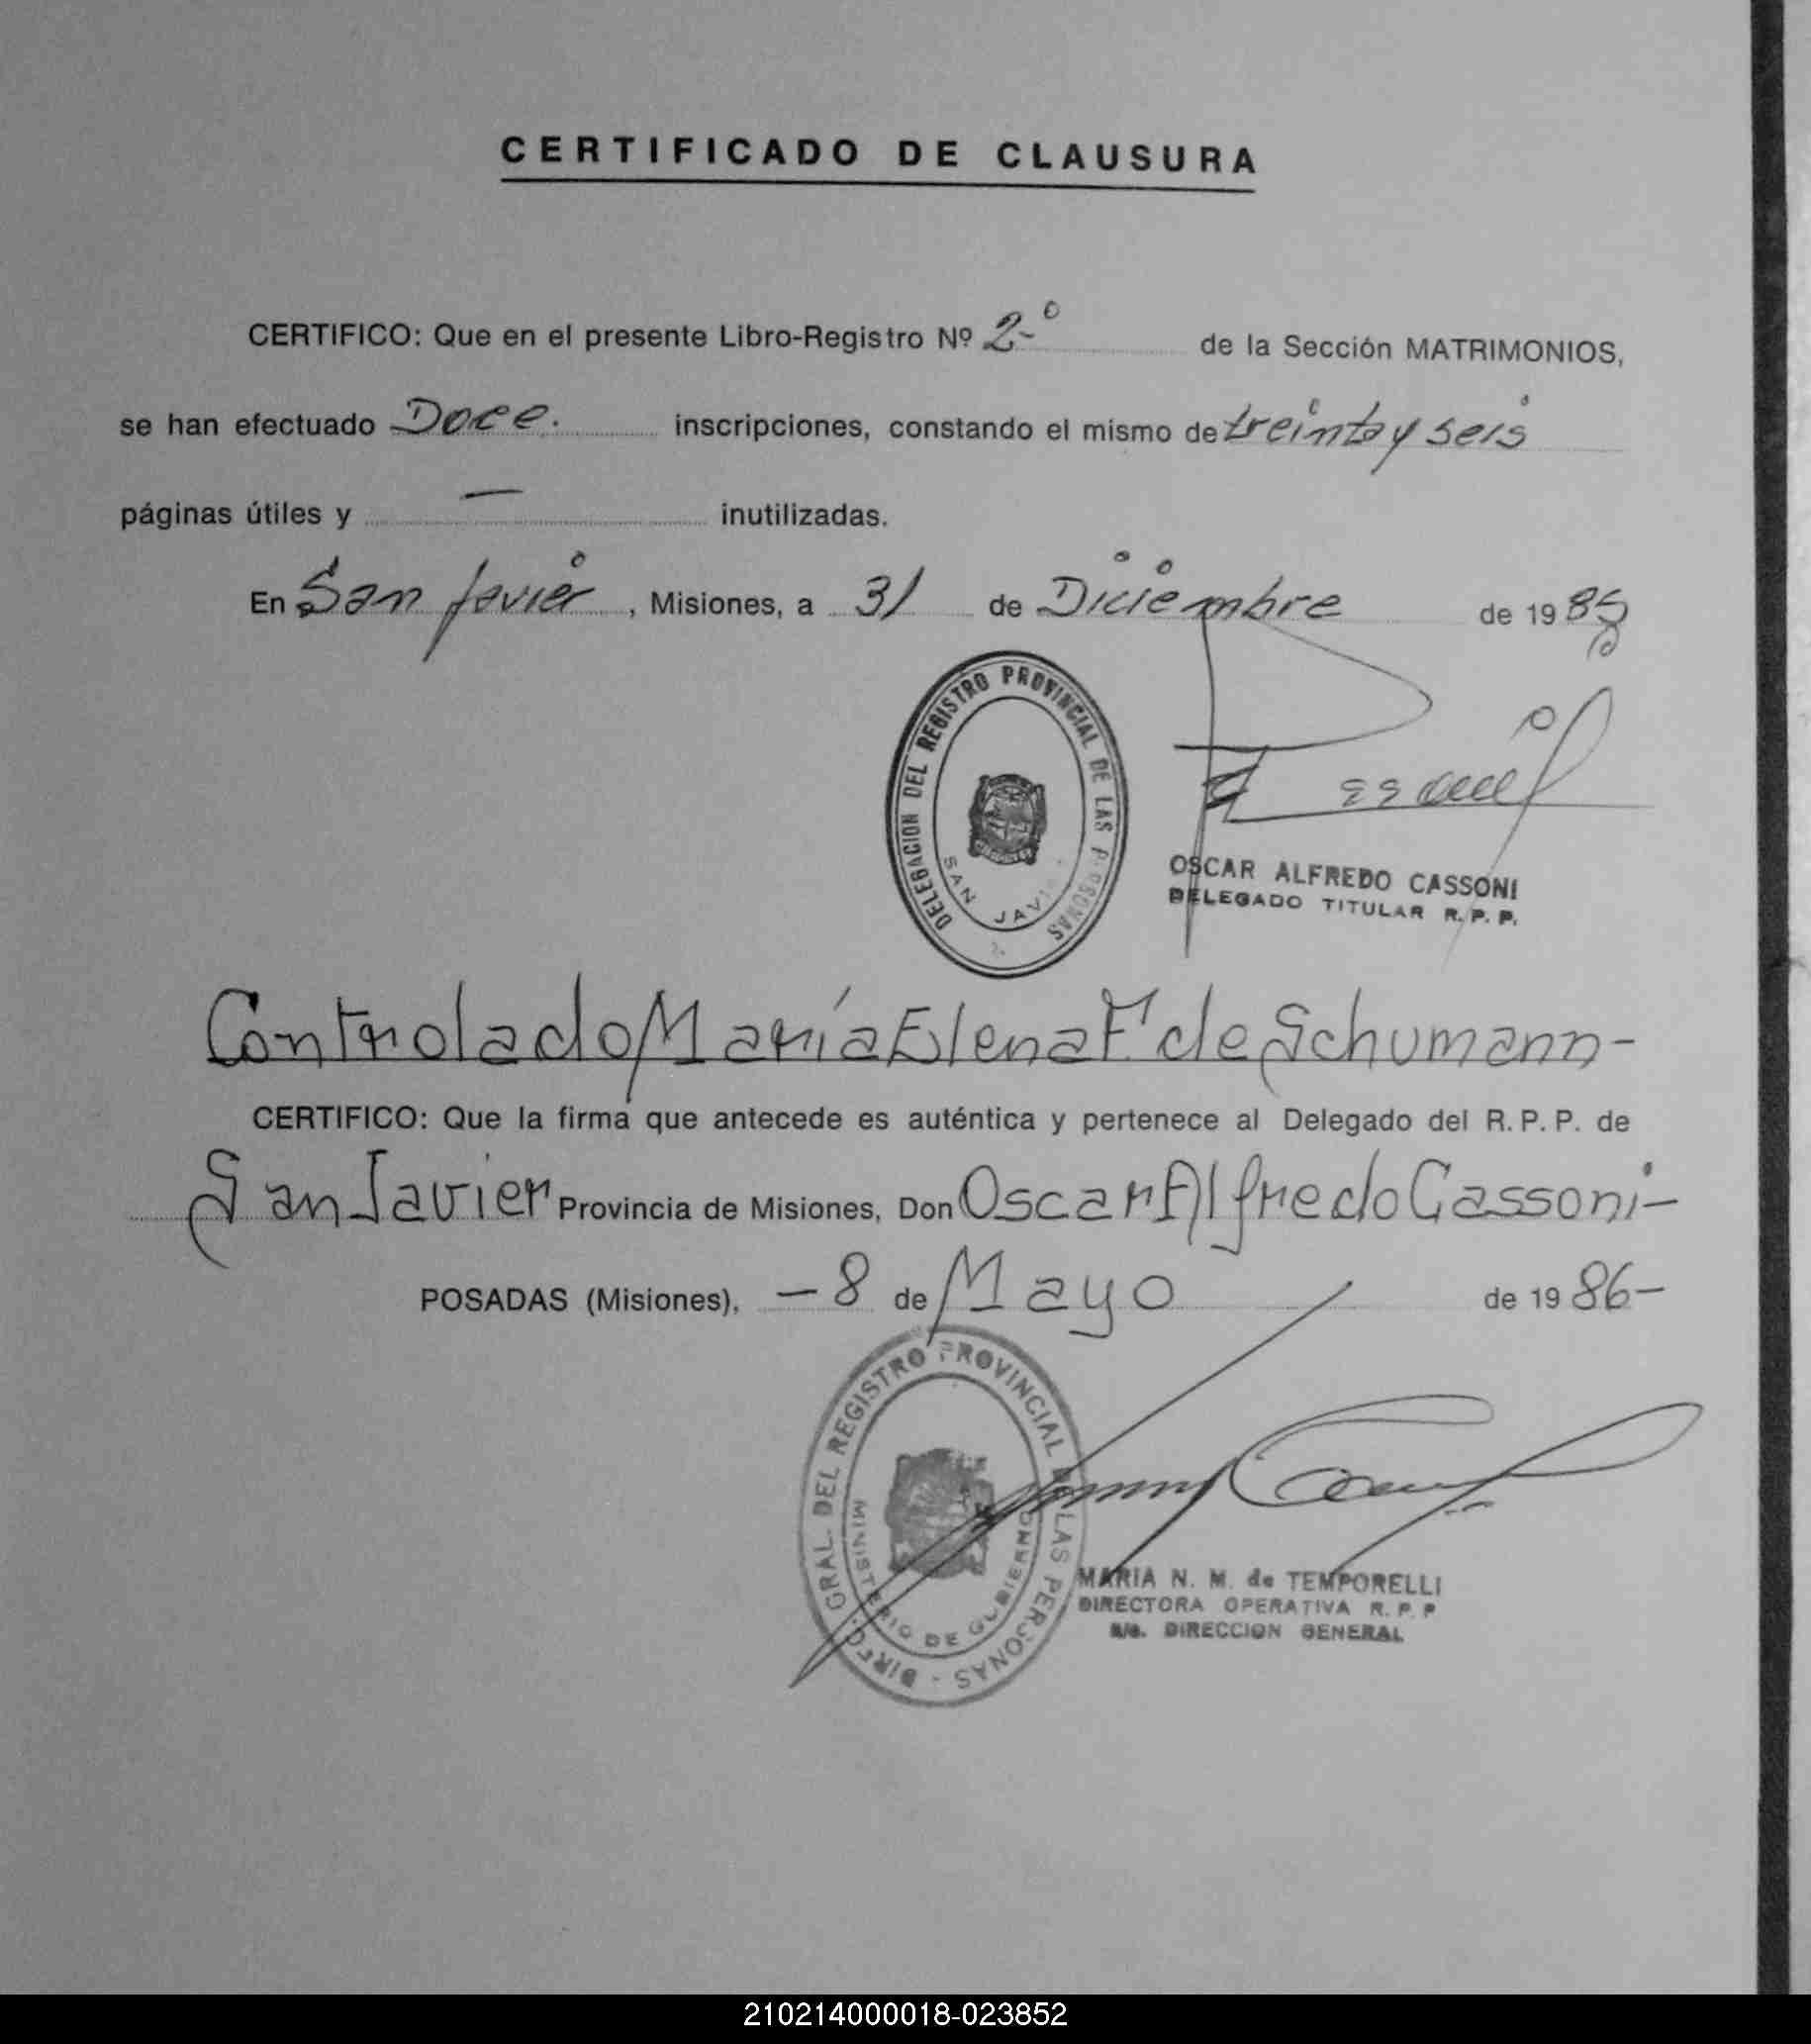 CERTIFICADO DE CLAUSURA
CERTIFICO: Que en el presente Libro-Registro Nº 2-º de la Sección MATRIMONIOS,
se han efectuado Doce. inscripciones, constando el mismo de treinta y seis
páginas útiles y — inutilizadas.
En San Javier, Misiones, a 31 de Diciembre de 1985
DELEGACION DEL REGISTRO PROVINCIAL DE LAS PERSONAS
SAN JAVIER
OSCAR ALFREDO CASSONI
DELEGADO TITULAR R. P. P.
Controlado María Elena F. de Schumann-
CERTIFICO: Que la firma que antecede es auténtica y pertenece al Delegado del R. P. P. de
San Javier Provincia de Misiones, Don Oscar Alfredo Cassoni-
POSADAS (Misiones), -8 de Mayo de 1986-
DIREC. GRAL. DEL REGISTRO PROVINCIAL DE LAS PERSONAS -
MINISTERIO DE GOBIERNO
MARIA N. M. de TEMPORELLI
DIRECTORA OPERATIVA R. P. P
DIRECCION GENERAL
210214000018-023852